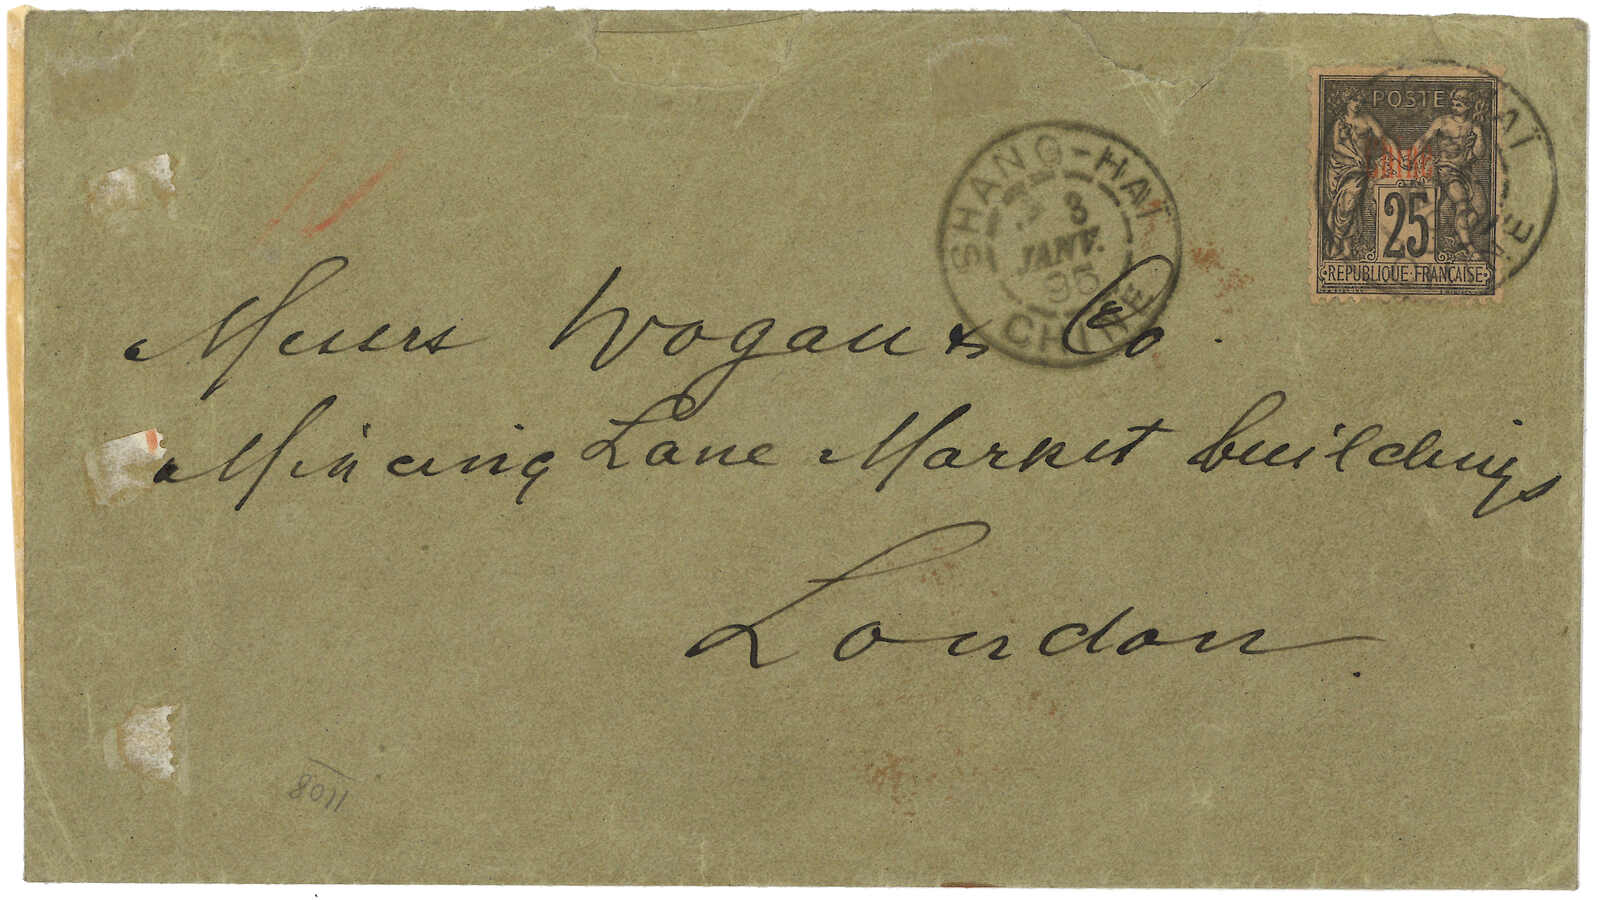 POSTE
Chine
25
REPUBLIQUE FRANÇAISE
SHANG-HAÏ
3
JANV.
95
CHINE
AÏ
NE
Messrs Wogau & Co.
Mincing Lane Market buildings
London.
1108